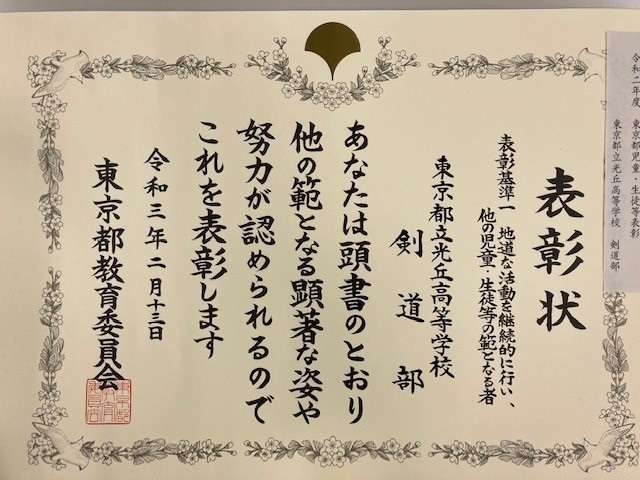 令和二年度 東京都児童・生徒等表彰
東京都立光丘高等学校 剣道部
表彰状
表彰基準一 地道な活動を継続的に行い、
他の児童・生徒等の範となる者
東京都立光丘高等学校
剣道部
あなたは頭書のとおり
他の範となる顕著な姿や
努力が認められるので
これを表彰します
令和三年二月十三日
東京都教育委員会